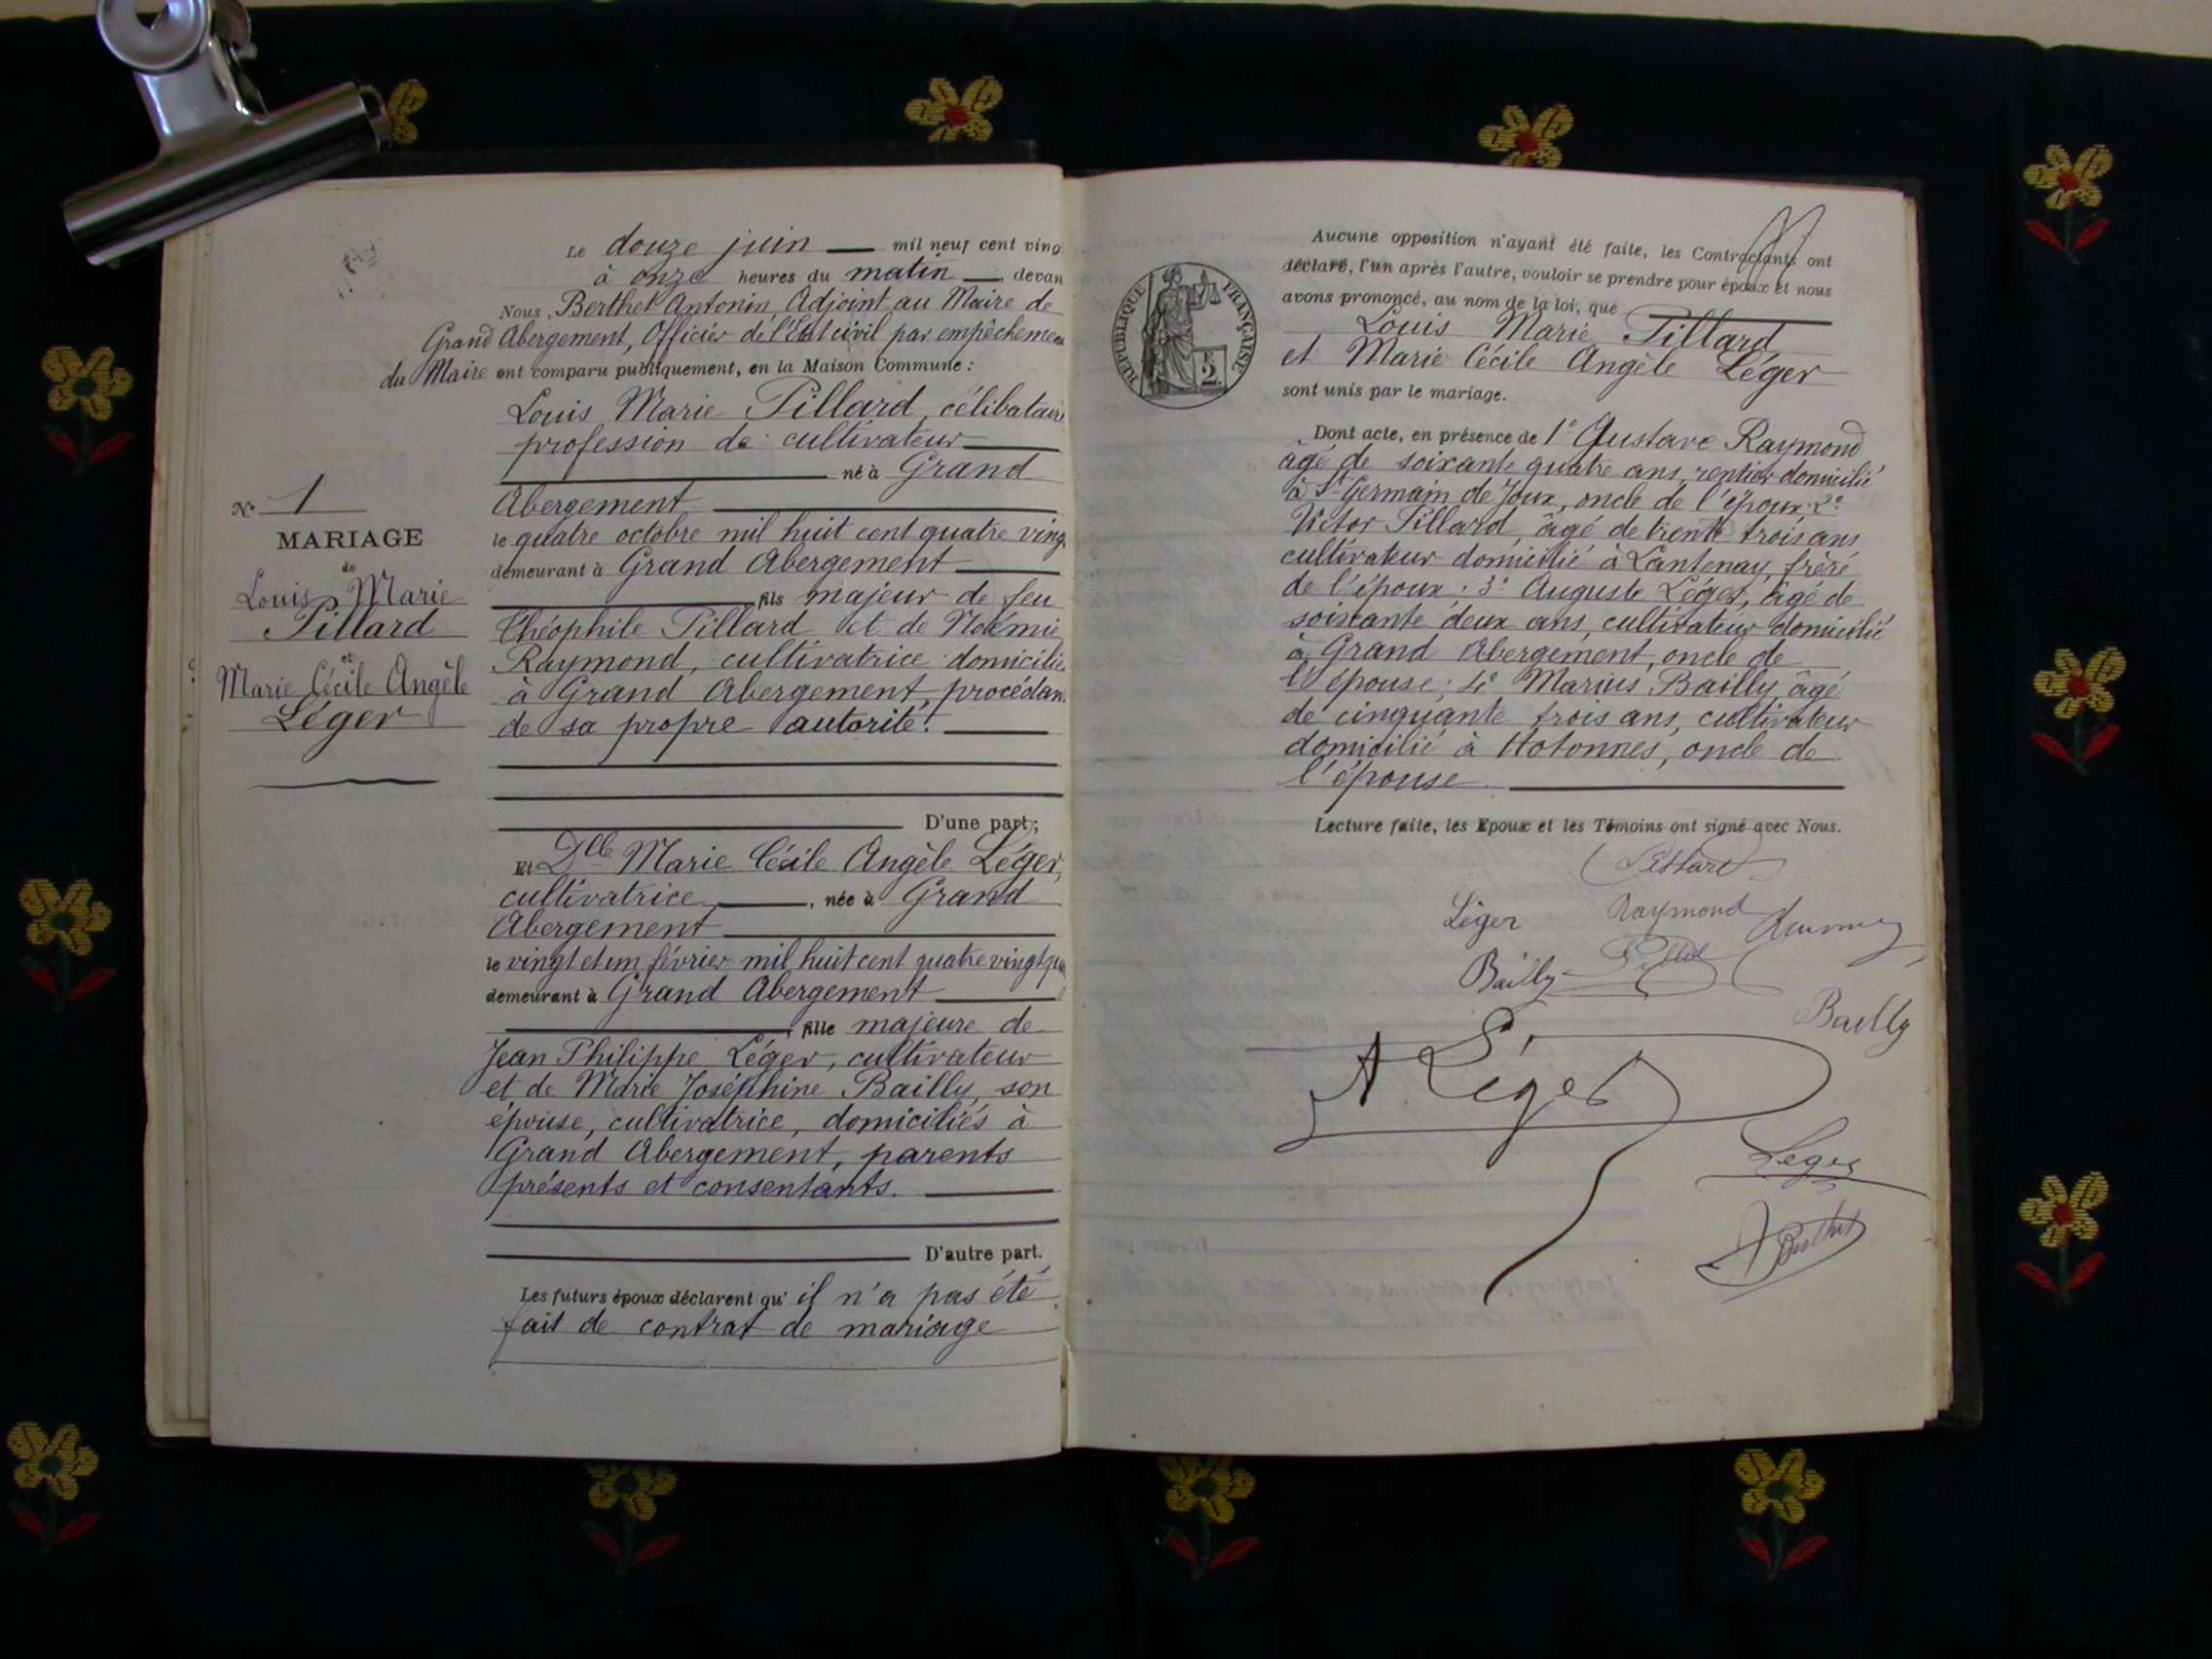 Le douze juin mil neuf cent ving
à onze heures du matin devan
Nous, Berthet Antonin, Adjoint au Maire de
Grand Abergement, Officier de l'Etat civil par empêcheme
du Maire ont comparu publiquement, en la Maison Commune :
Louis Marie Pillard, célibataire
profession de cultivateur
né à Grand
Abergement
le quatre octobre mil huit cent quatre ving
demeurant à Grand Abergement
fils majeur de feu
Théophile Pillard et de Noémie
Raymond, cultivatrice domicilié
à Grand Abergement, procédan
de sa propre autorité.
D'une part ;
Et Dlle Marie Cécile Angèle Léger,
cultivatrice, née à Grand
Abergement
le vingt et un février mil huit cent quatre vingt
demeurant à Grand Abergement
fille majeure de
Jean Philippe Léger, cultivateur
et de Marie Joséphine Bailly, son
épouse, cultivatrice, domiciliés à
Grand Abergement, parents
présents et consentants.
D'autre part.
Les futurs époux déclarent qu'il n'a pas été
fait de contrat de mariage
No 1
MARIAGE
de
Louis Marie
Pillard
et
Marie Cécile Angèle
Léger
RÉPUBLIQUE FRANÇAISE
2 F
Aucune opposition n'ayant été faite, les Contractants ont
déclaré, l'un après l'autre, vouloir se prendre pour époux et nous
avons prononcé, au nom de la loi, que
Louis Marie Pillard
et Marie Cécile Angèle Léger
sont unis par le mariage.
Dont acte, en présence de 1° Gustave Raymond
âgé de soixante quatre ans, rentier domicilié
à St Germain de Joux, oncle de l'époux ; 2°
Victor Pillard, âgé de trente trois ans
cultivateur domicilié à Lantenay, frère
de l'époux ; 3° Auguste Léger, âgé de
soixante deux ans, cultivateur domicilié
à Grand Abergement, oncle de
l'épouse ; 4° Marius Bailly âgé
de cinquante trois ans, cultivateur
domicilié à Hotonnes, oncle de
l'épouse
Lecture faite, les Epoux et les Témoins ont signé avec Nous.
Pillard
Léger Raymond
Bailly Pillard
Bailly
A Léger
Leger
A Berthet